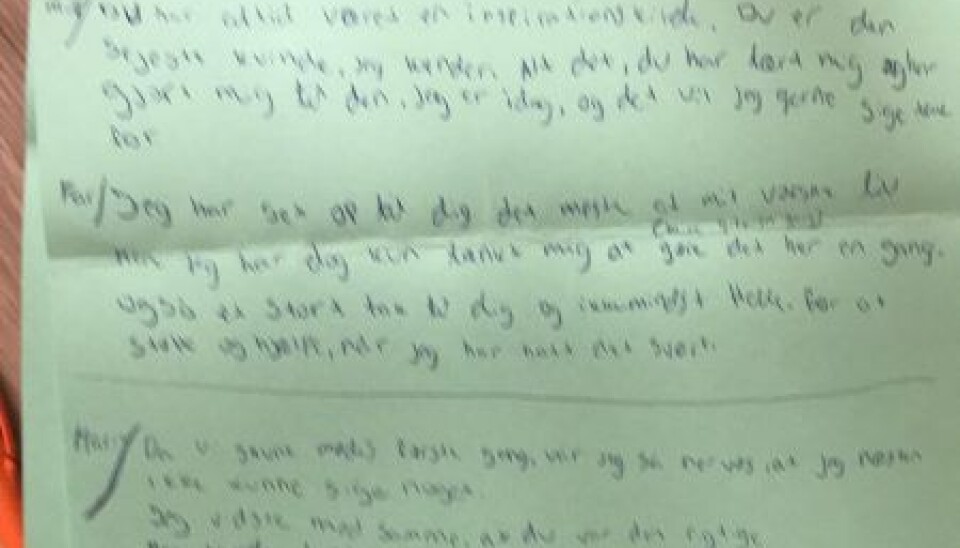 har altid været en inspirationskilde. Du er den
sejeste kvinde, jeg kender. Alt det, du har lært mig og har
gjort mig til den, jeg er idag, og det vil jeg gerne sige
for
Far/ Jeg har set op til dig det meste af mit voksne liv
jeg har dog kun tænkt mig at gøre det her en gang.
også et stort tak til dig og ikke mindst Helle. for at
støtte og hjælpe, når jeg har haft det svært.
Da vi mødtes første gang, var jeg så nervøs, at jeg næsten
ikke kunne sige noget.
Jeg vidste med samme, at du var den rigtige.